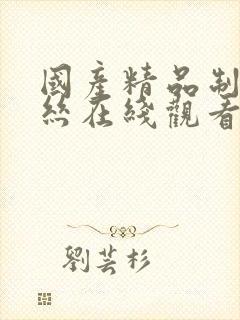 國産精品制
丝在綫觀看
劉芸杉